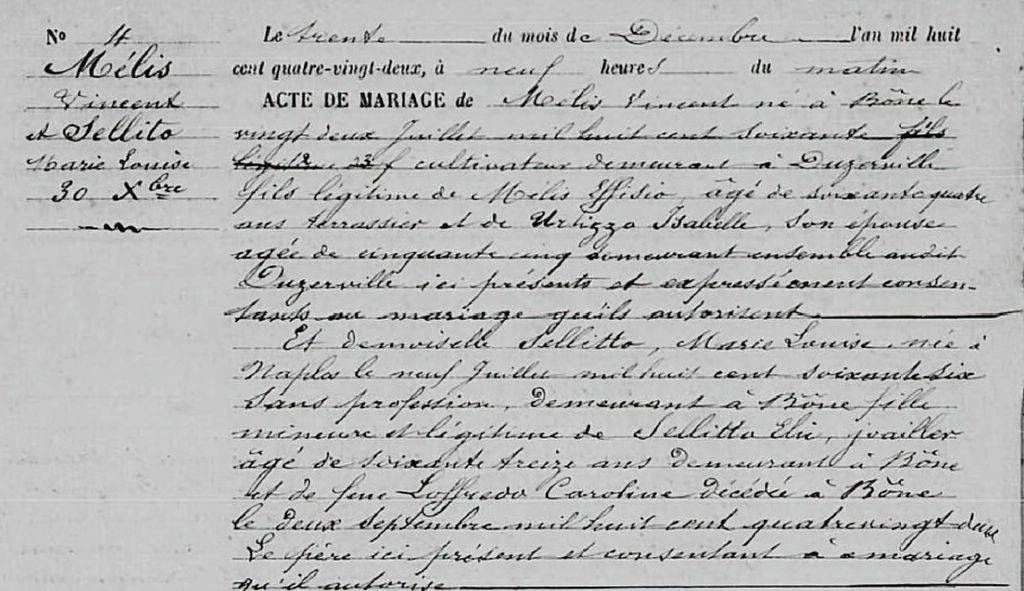 N° 4
Mélis
Vincent
et Sellito
Marie Louise
30 Xbre
Le trente du mois de Décembre l'an mil huit
cent quatre-vingt-deux, à neuf heures du matin
ACTE DE MARIAGE de Mélis Vincent né à Bône le
vingt deux Juillet mil huit cent soixante fils
cultivateur demeurant à Duzerville
fils légitime de Mélis Effisio, âgé de soixante quatre
ans terrassier et de Urtizzo Isabelle, son épouse
agée de cinquante cinq demeurant ensemble audit
Duzerville ici présents et expressément consen-
tants au mariage qu'ils autorisent.
Et demoiselle Sellitto, Marie Louise, née à
Naples le neuf Juillet mil huit cent soixante six
sans profession, demeurant à Bône fille
mineure et légitime de Sellitto Elie, joailler
âgé de soixante treize ans demeurant à Bône
et de feue Loffredo Caroline décédée à Bône
le deux septembre mil huit cent quatrevingt deux
Le père ici présent et consentant à ce mariage
qu'il autorise